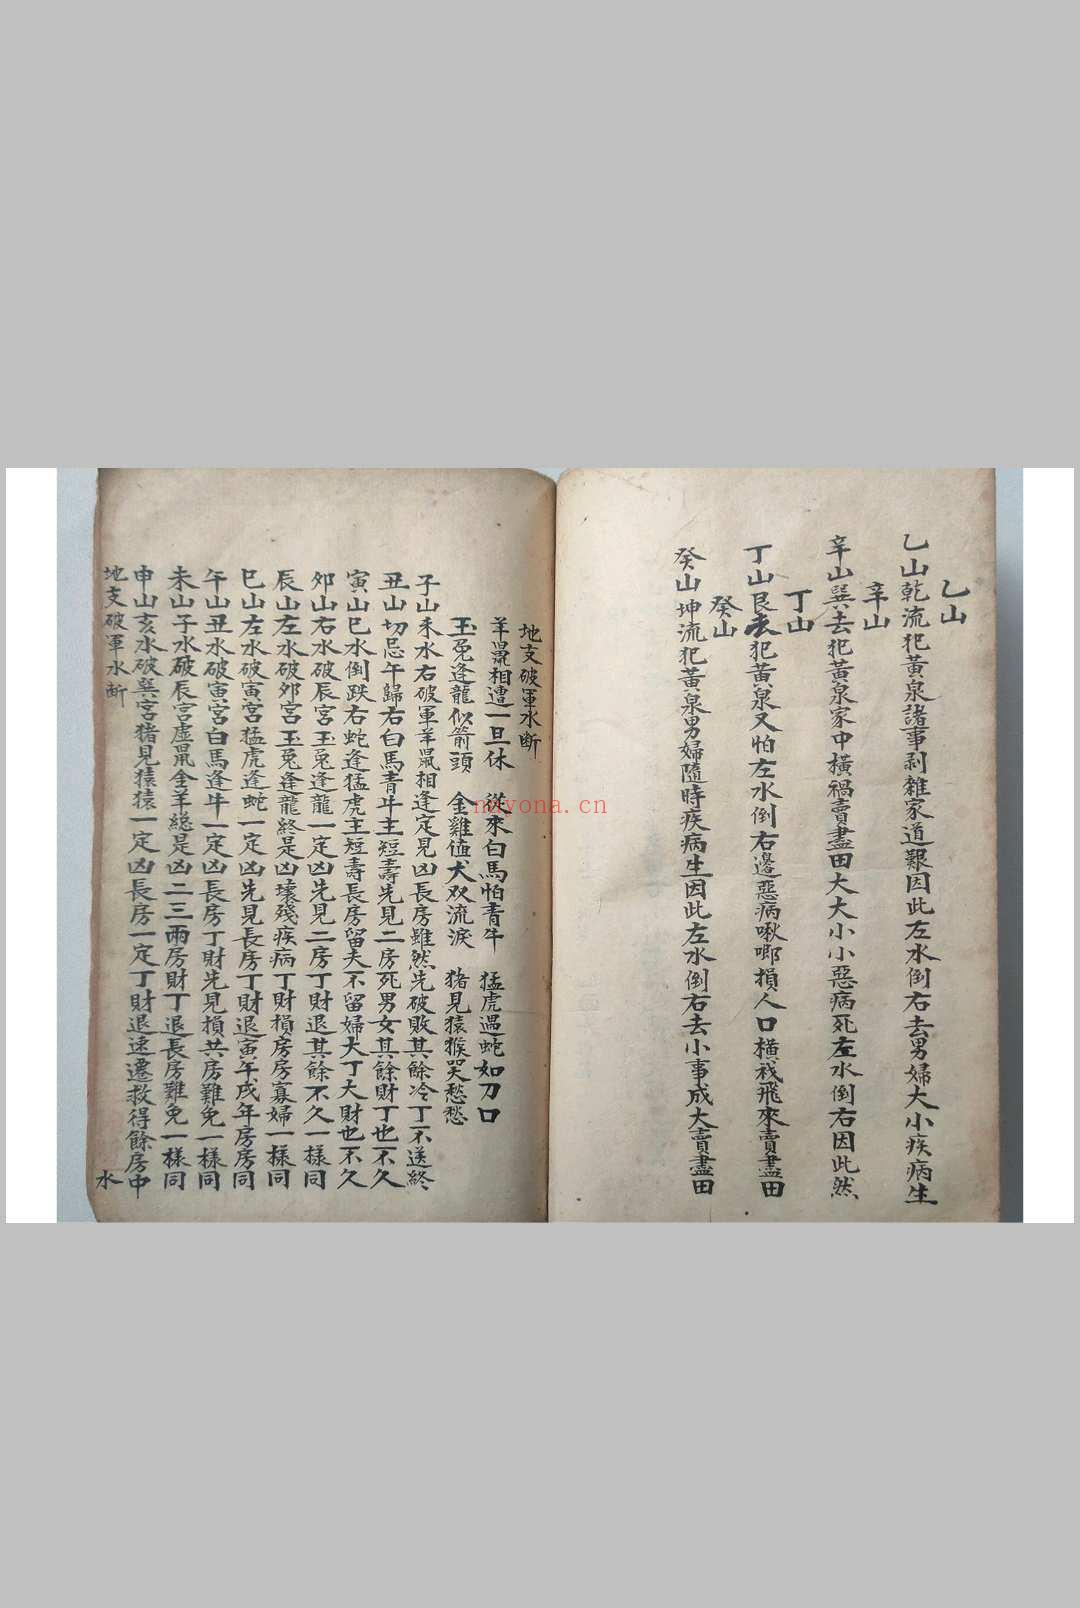 乙山
乙山乾流犯黃泉諸事剥雜家道艱因此左水倒右去男婦大小疾病生
辛山
辛山巽去犯黃泉家中橫禍賣盡田大大小小惡病死左水倒右因此然
丁山
丁山艮去犯黃泉又怕左水倒右邊惡病啾唧損人口橫衬飛來賣盡田
癸山
癸山坤流犯黃泉男婦隨時疾病生因此左水倒右去小事成大賣盡田
地支破軍水断
羊鼠相遭一旦休 從來白馬怕青牛 猛虎遇蛇如刀口
玉兎逢龍似箭頭 金雞值犬双流淚 猪見猿猴哭愁愁
子山未水右破軍羊鼠相逢定見凶長房雖然先破敗其餘冷丁不送終
丑山切忌午歸右白馬青牛主短壽先見二房死男女其餘財丁也不久
寅山巳水倒跌右蛇逢猛虎主短壽長房留夫不留婦大丁大財也不久
夘山右水破辰宮玉兎逢龍一定凶先見二房丁財退其餘不久一様同
辰山左水破夘宮玉兎逢龍終是凶壞殘疾病丁財損房房寡婦一様同
巳山左水破寅宮猛虎逢蛇一定凶先見長房丁財退寅午戌年房房同
午山丑水破寅宮白馬逢牛一定凶長房丁財先見損共房難免一様同
未山子水破辰宮虛鼠金羊総是凶二三兩房財丁退長房難免一樣同
申山亥水破巽宮猪見猿猿一定凶長房一定丁財退速遷救得餘房中
地支破軍水断
水
nayona.cn